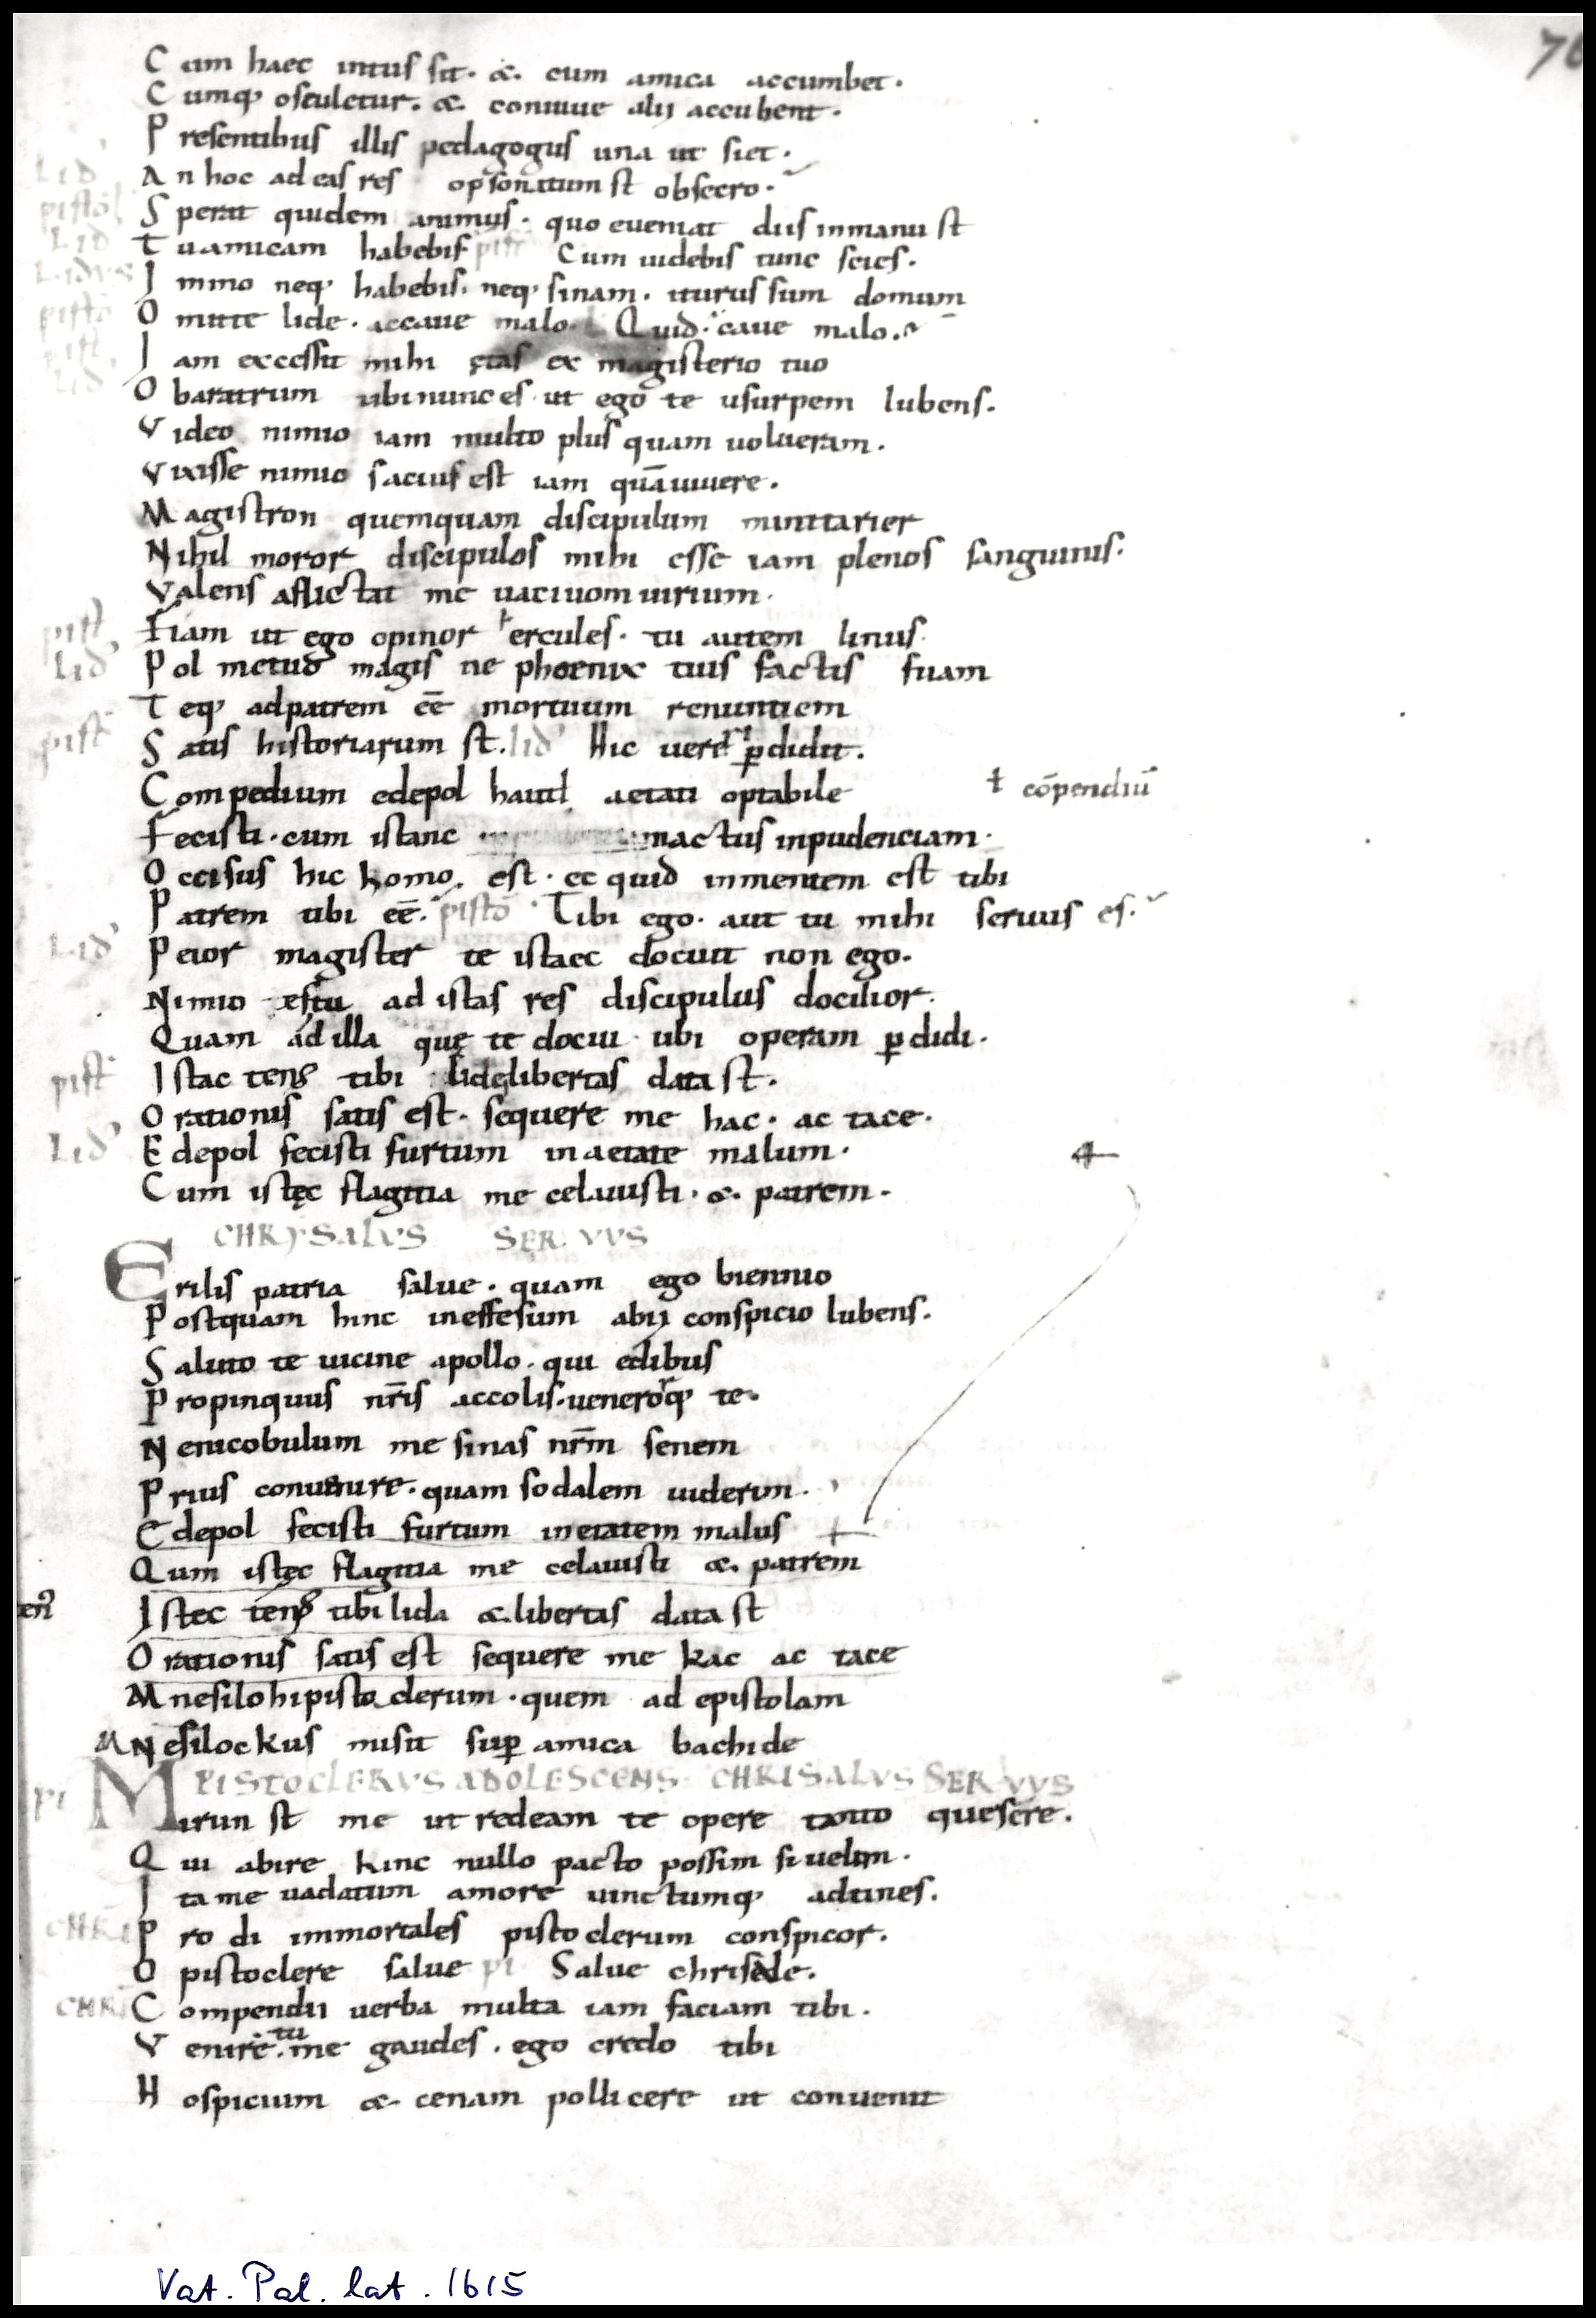 76
C um haec intus sit. &. cum amica accumbet.
C umq; osculetur. &. conuiue alij accubent.
P resentibus illis pedagogus una ut siet.
Lid' A n hoc ad eas res opsonatum st obsecro.
pisto S perat quidem animus. quo eueniat diis inmanu st
Lid T uamicam habebis pist Cum uidebis tunc scies.
Lidus I mmo neq; habebis. neq; sinam. iturus sum domum
pisto O mitte lide. accaue malo. Quid. caue malo.
pist I am excessit mihi ętas ex magisterio tuo
lid O baratrum ubinunc es. ut ego te usurpem lubens.
V ideo nimio iam multo plus quam uolueram.
V ixisse nimio sacius est iam quāuiuere.
M agistron quemquam discipulum minitarier
N ihil moror discipulos mihi esse iam plenos sanguinis.
V alens aflictat me uaciuom uirium.
pist F iam ut ego opinor hercules. tu autem linus.
Lid' P ol metuo magis ne phoenix tuis factis fuam
T eq; adpatrem eē mortuum renuntiem
pist S atis historiarum st. lid' Hic uere ꝑdidit.
C ompedium edepol haud aetati optabile ł cōpendiū
F ecisti. cum istanc nactus inpudenciam.
O ccisus hic homo. est. ec quid inmentem est tibi
P atrem tibi eē. pisto Tibi ego. aut tu mihi seruus es.
Lid' P eior magister te istaec docuit non ego.
N imio es tu ad istas res discipulus docilior.
Q uam ad illa quę te docui ubi operam ꝑdidi.
pist I stac ten' tibi lide libertas data st.
O rationis satis est. sequere me hac. ac tace.
Lid' E depol fecisti furtum in aetate malum.
C um istęc flagitia me celauisti. &. patrem.
CHRYSALVS SERVVS
E rilis patria salue. quam ego biennio
P ostquam hinc ineffesum abij conspicio lubens.
S aluto te uicine apollo. qui edibus
P ropinquus nr̄is accolis. ueneroq; te.
N enicobulum me sinas nr̄m senem
P rius conuenire. quam sodalem uiderim.
E depol fecisti furtum inetatem malus
Q um istęc flagitia me celauisti &. patrem
I stec ten' tibi lida &. libertas data st
O rationis satis est sequere me hac ac tace
M nesilohipisto clerum. quem ad epistolam
M Nesilockus misit suꝑ amica bachide
PISTOCLERVS ADOLESCENS. CHRISALVS SERVVS
pi M irun st me ut redeam te opere tanto quesere.
Q ui abire hinc nullo pacto possim si uelim.
I ta me uadatum amore uinctumq; adtines.
CHRI P ro di immortales pistoclerum conspicor.
O pistoclere salue pi Salue chrisale.
CHRI C ompendii uerba multa iam faciam tibi.
V enire tu me gaudes. ego credo tibi
H ospicium &. cenam pollicere ut conuenit
Vat. Pal. lat. 1615